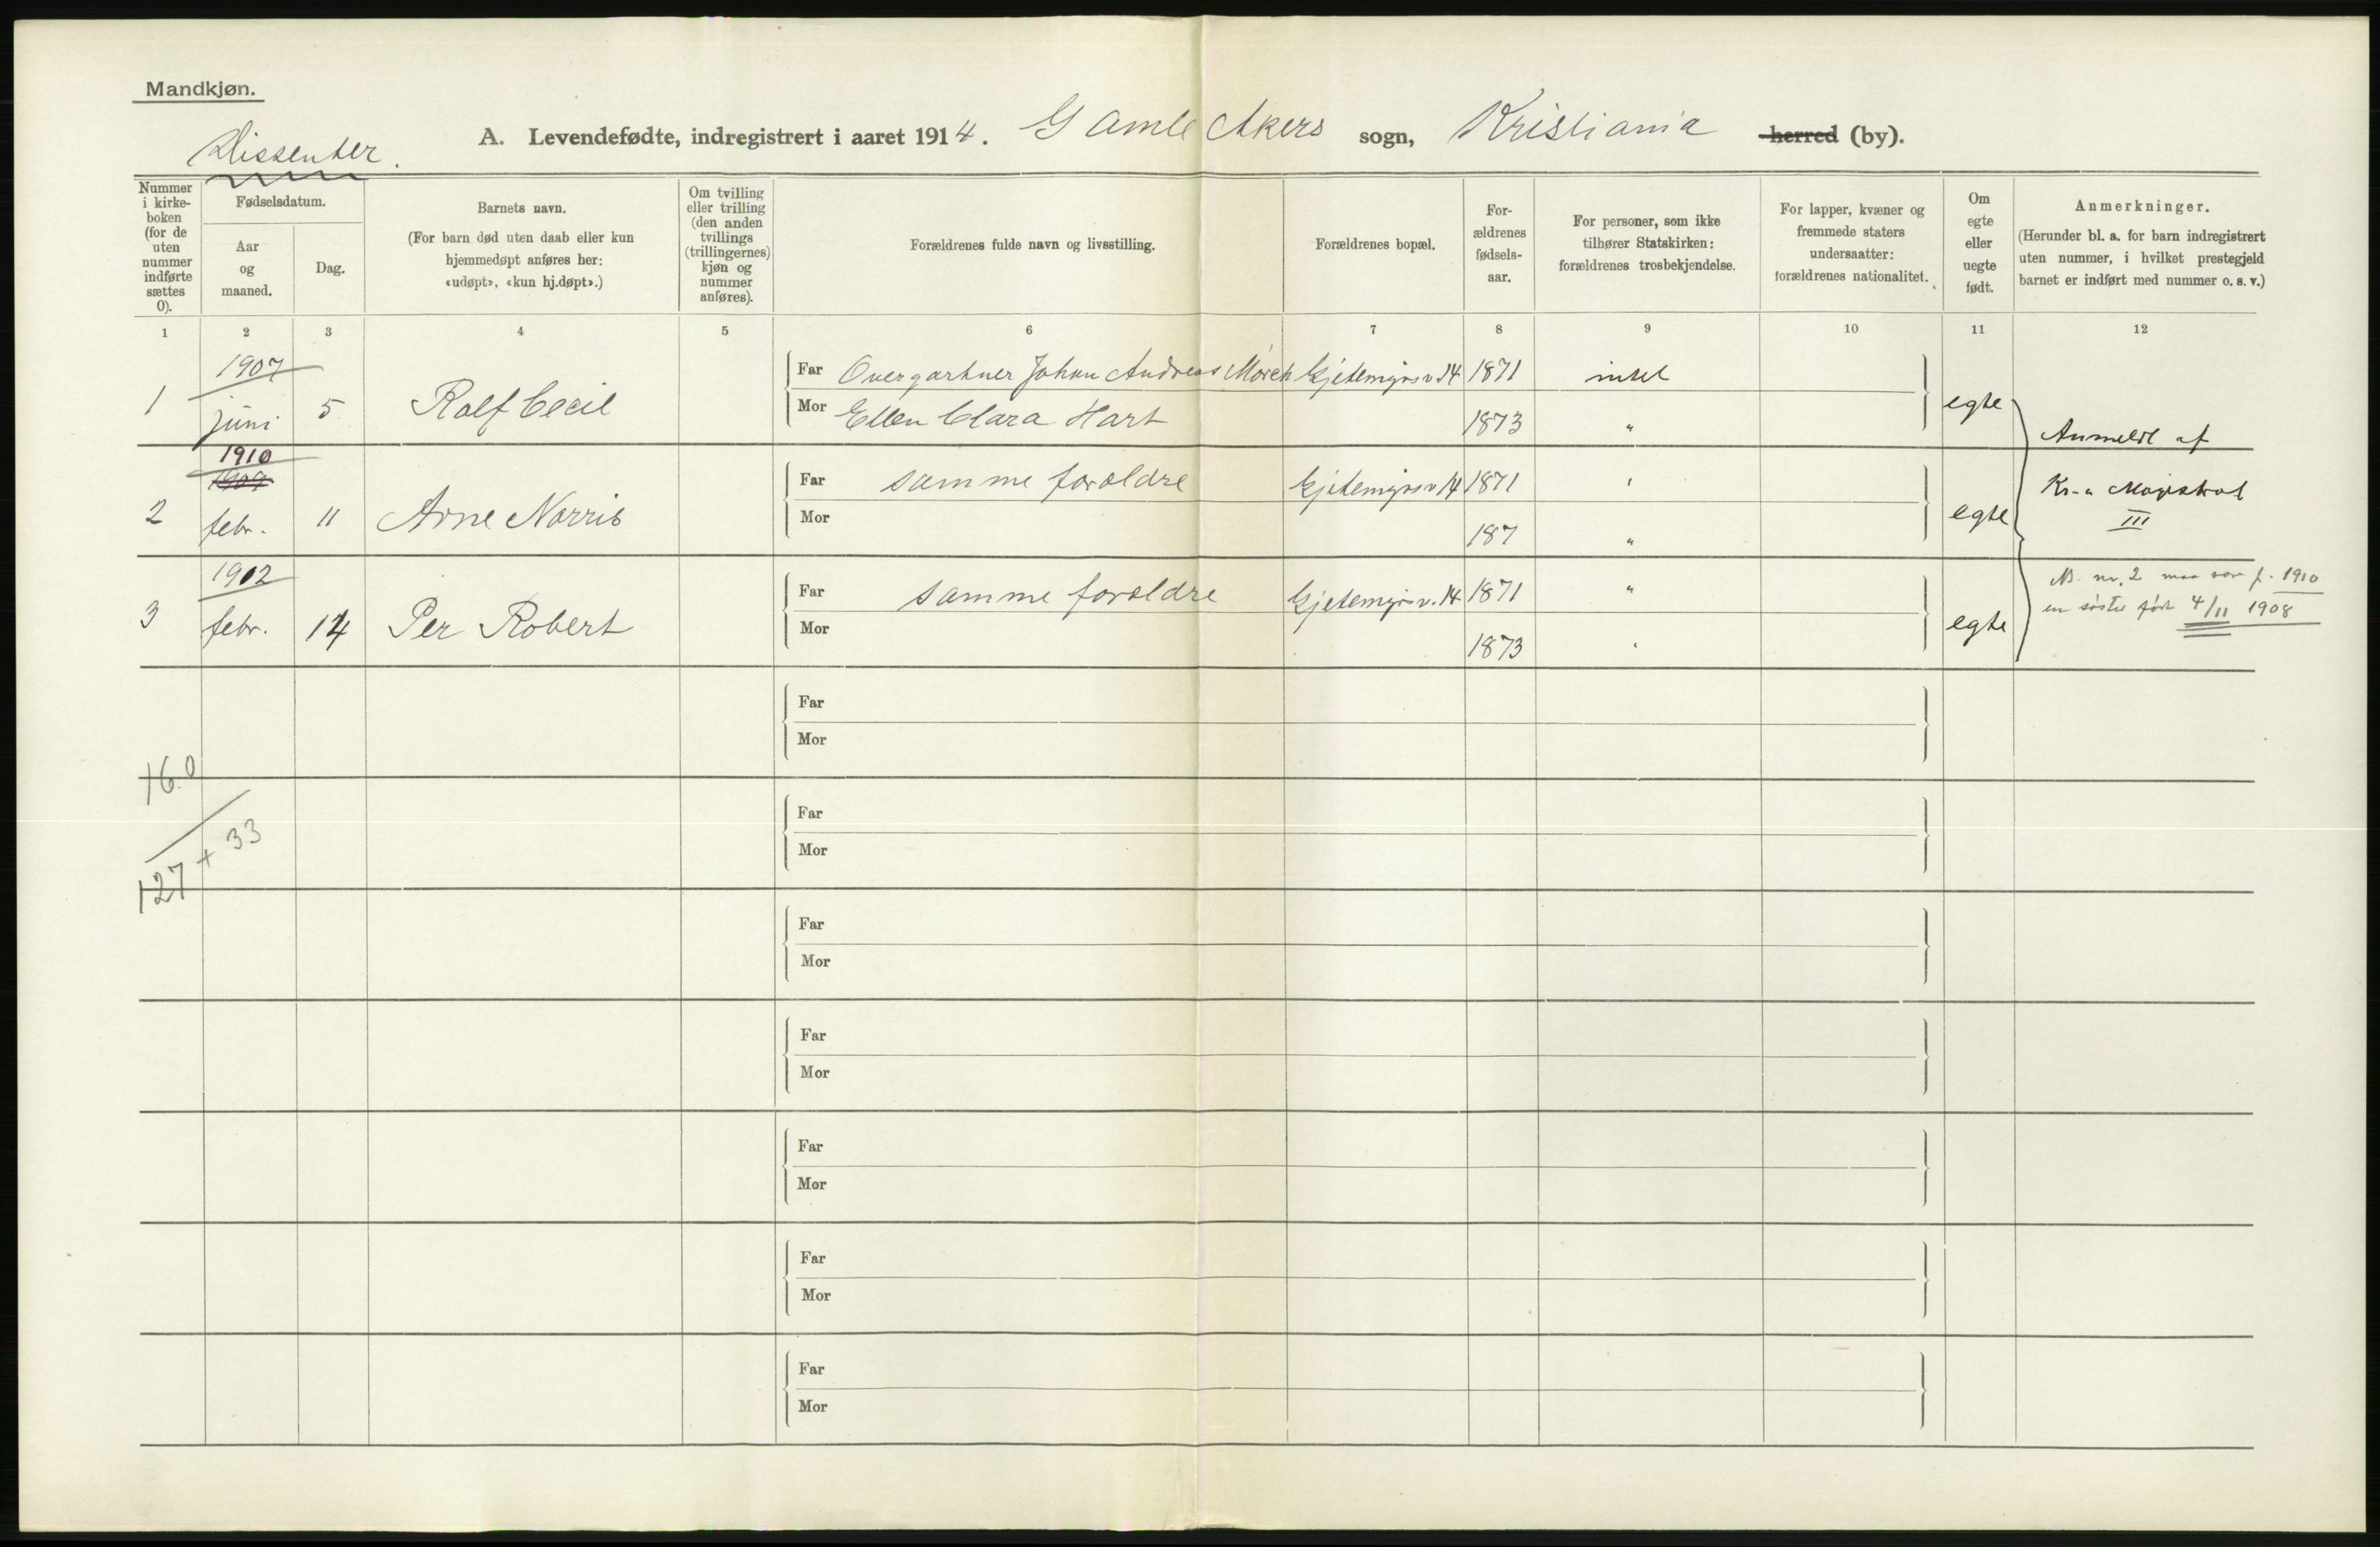 Mandkjøn.
Dissenter.
A. Levendefødte, indregistrert i aaret 1914. Gamle Akers sogn, Kristiania herred (by).
Nummer i kirke- boken (for de uten nummer indførte sættes 0).
Fødselsdatum.
Aar og maaned.
Dag.
Barnets navn.
(For barn død uten daab eller kun hjemmedøpt anføres her: «udøpt», «kun hj.døpt».)
Om tvilling eller trilling (den anden tvillings (trillingernes) kjøn og nummer anføres).
Forældrenes fulde navn og livsstilling.
Forældrenes bopæl.
For- ældrenes fødsels- aar.
For personer, som ikke tilhører Statskirken: forældrenes trosbekjendelse.
For lapper, kvæner og fremmede staters undersaatter: forældrenes nationalitet.
Om egte eller uegte født.
Anmerkninger.
(Herunder bl. a. for barn indregistrert uten nummer, i hvilket prestegjeld barnet er indført med nummer o. s. v.)
1 2 3 4 5 6 7 8 9 10 11 12
1 1907 juni 5 Ralf Cecil
Far Overgartner Johan Andreas Mørch 14 1871 intet
Mor Ellen Clara Hart 1873 "
egte
Anmeldt af
Kr.a Magistrat
III
2 1910 1909 febr. 11 Arne Norris
Far samme forældre 14 1871 "
Mor 187 "
egte
3 1912 febr. 14 Per Robert
Far samme forældre 14 1871 "
Mor 1873 "
egte
NB. nr. 2 maa være f. 1910
en søster født 4/11 1908
Far
Mor
160
Far
Mor
127 + 33
Far
Mor
Far
Mor
Far
Mor
Far
Mor
Far
Mor